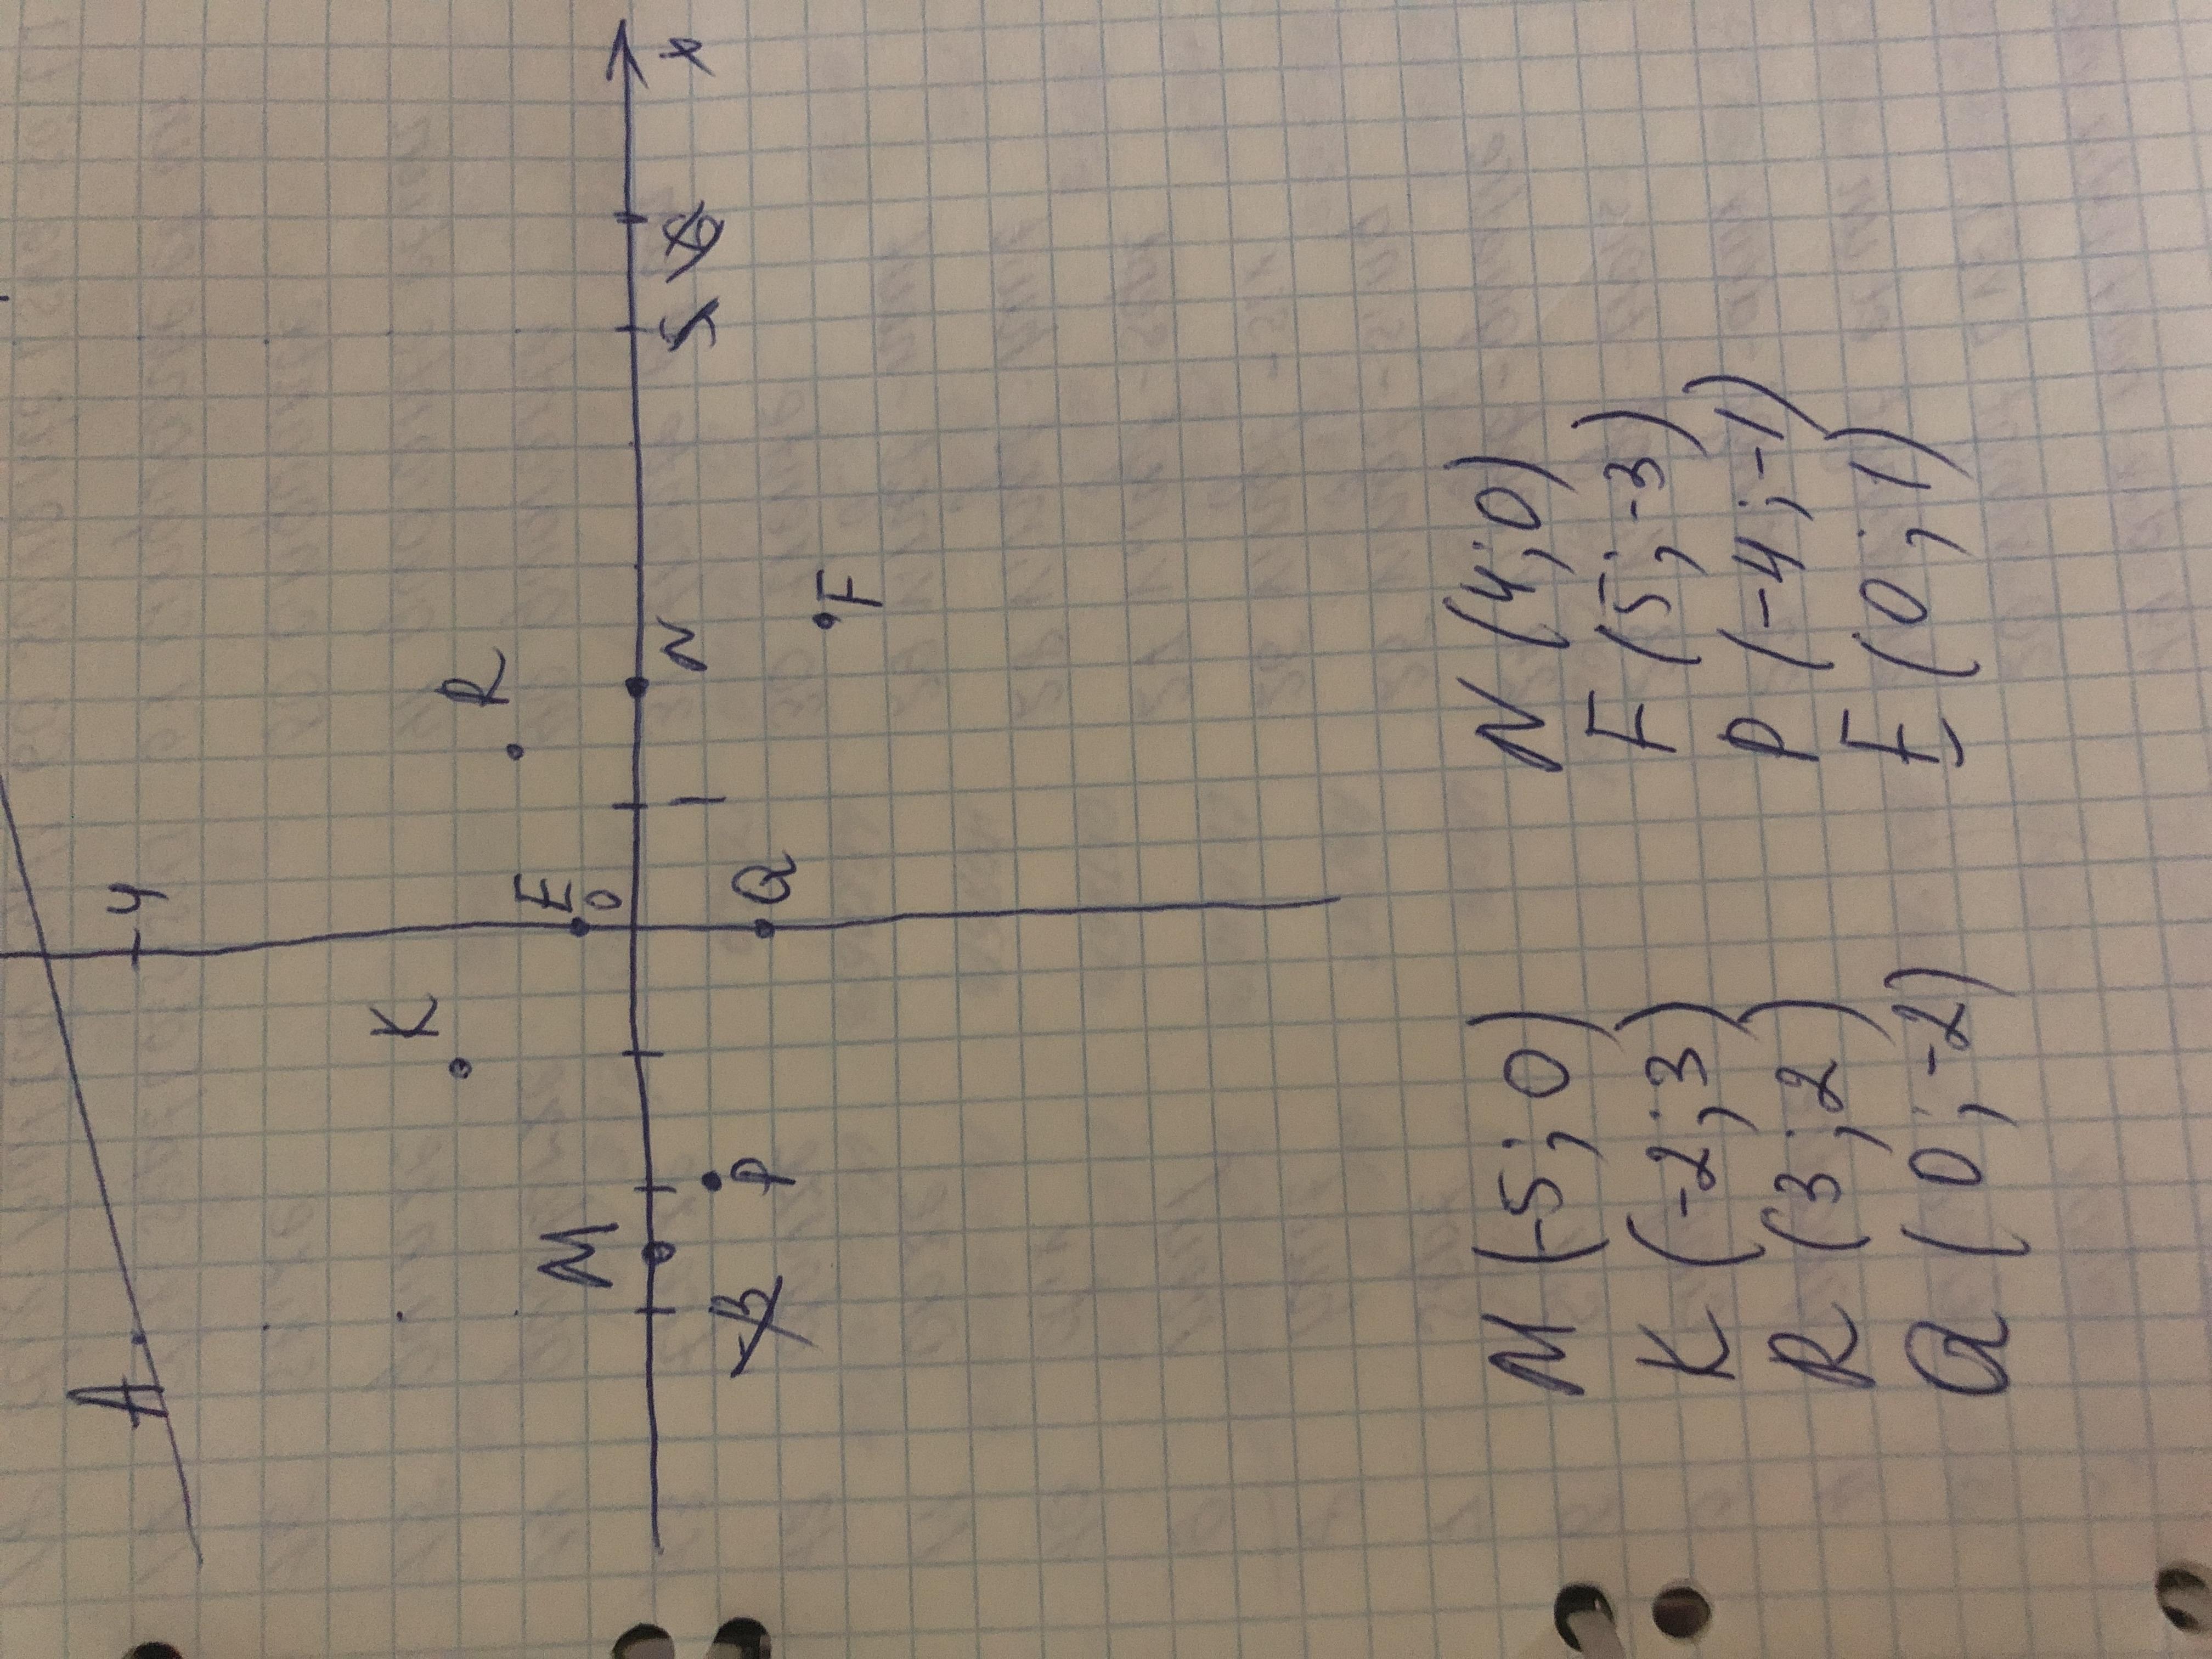 A
4
K
R
E
0
x
M
N
1
5
6
P
Q
F
M (-5; 0)
N (4; 0)
K (-2; 3)
F (5; -3)
R (3; 2)
P (-4; -1)
Q (0; -2)
E (0; 1)